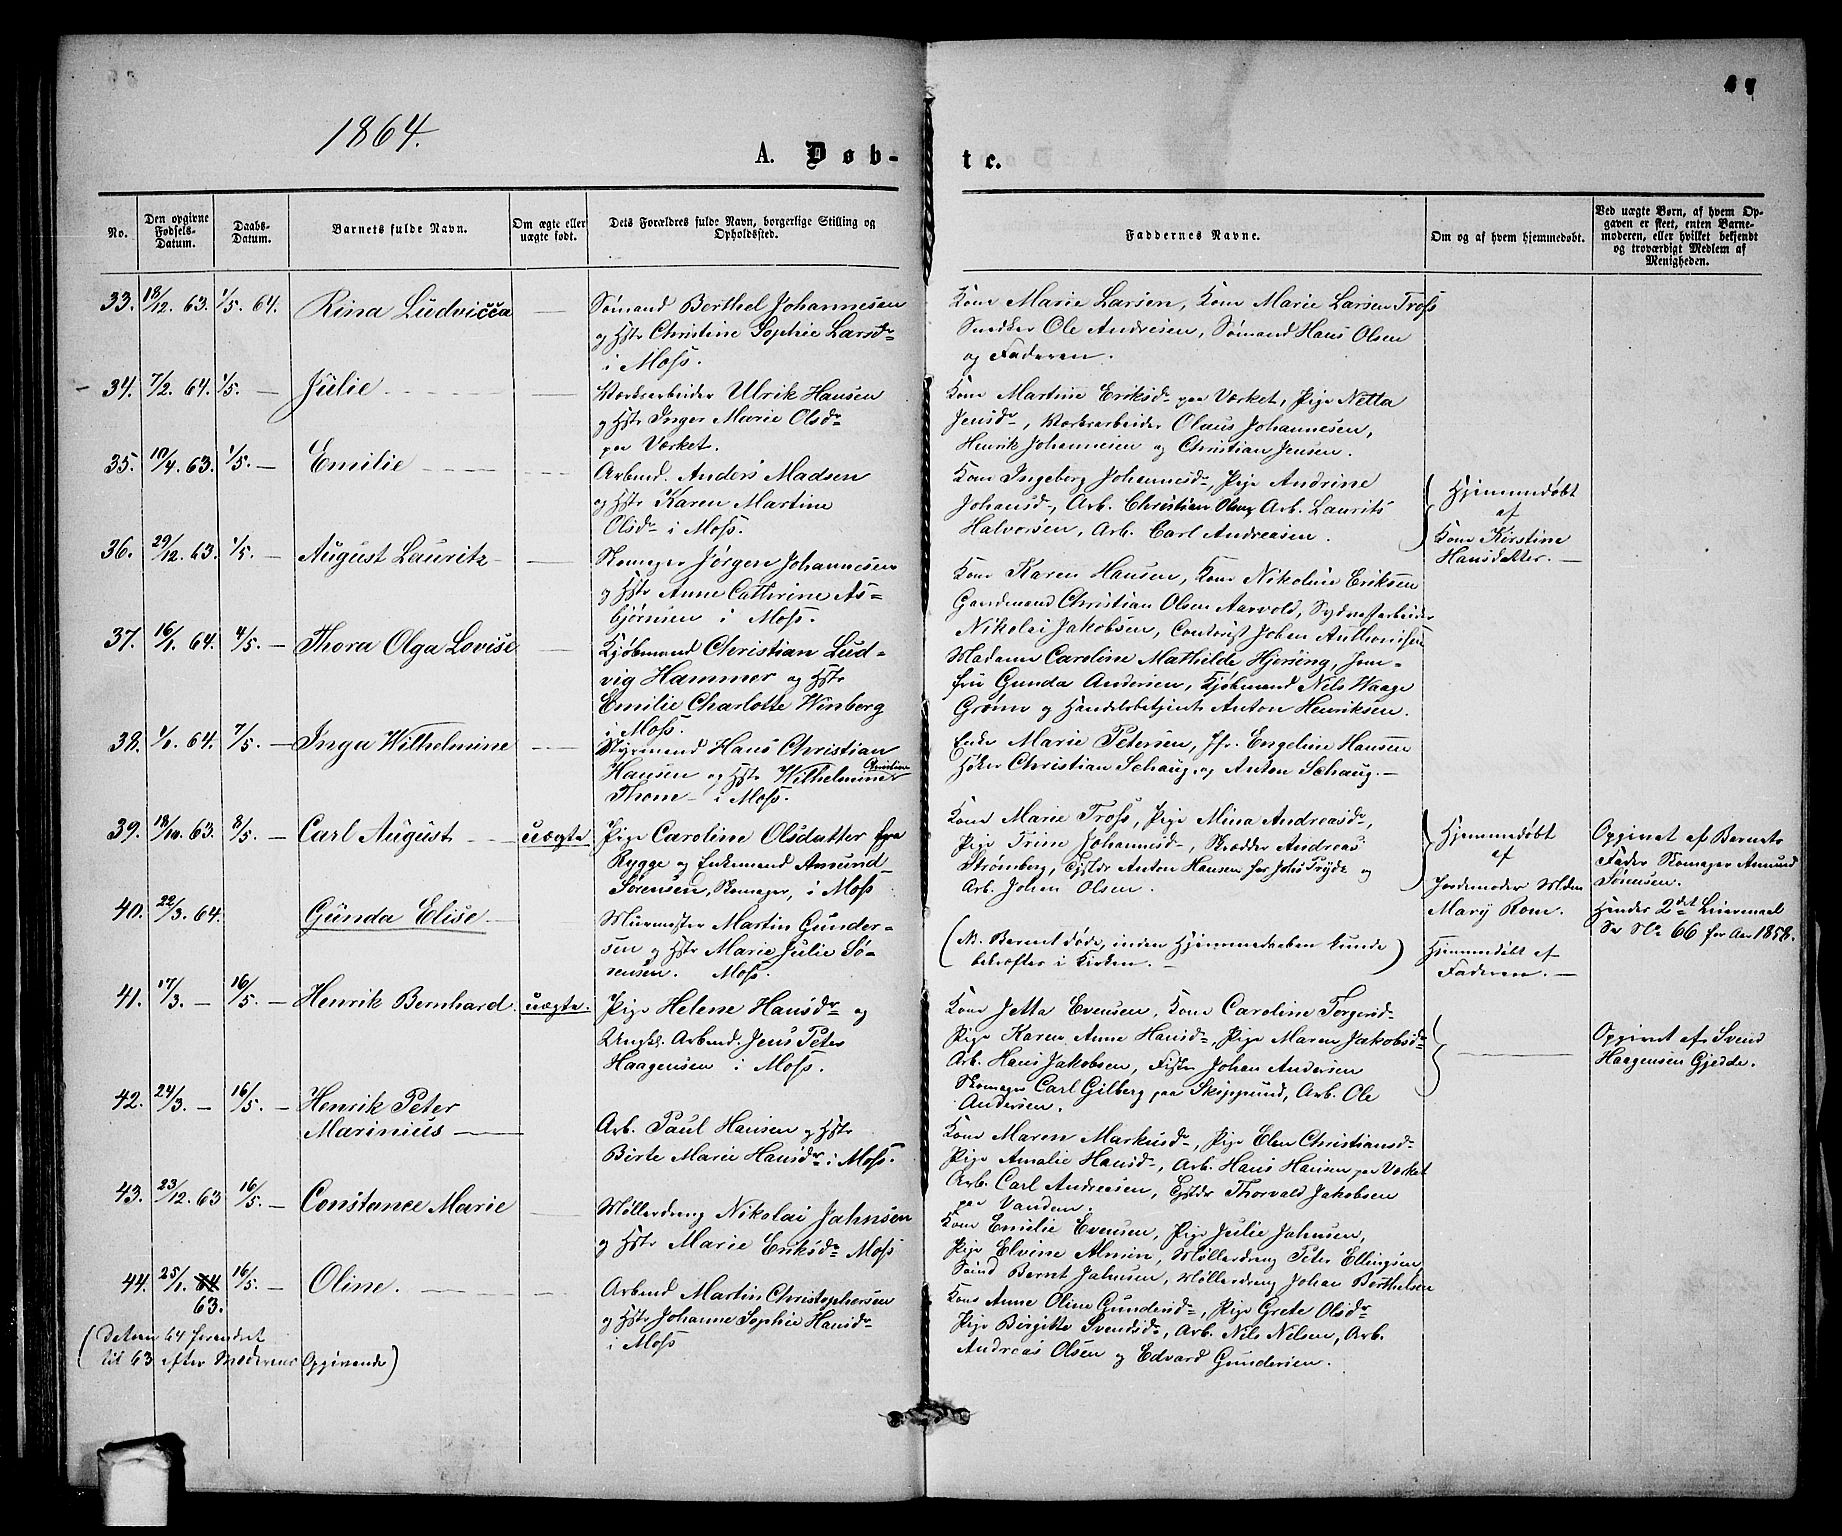 1864.
A. Døb-
te.
No.
Den opgivne Fødsels-Datum.
Daabs-Datum.
Barnets fulde Navn.
Om ægte eller uægte født.
Dets Forældres fulde Navn, borgerlige Stilling og Opholdssted.
Faddernes Navne.
Om og af hvem hjemmedøbt.
Ved uægte Børn, af hvem Opgaven er skeet, enten Barnemoderen, eller hvilket bekjendt og troværdigt Medlem af Menigheden.
33. 18/12 63. 1/5 64. Rina Ludvicca
Sømand Berthel Johannesen
og Hstr Christine Sophie Larsdr
i Moss.
Kone Marie Larsen, Kone Marie Larsen Tross
Snedker Ole Andresen, Sømand Hans Olsen
og Faderen.
34. 7/2 64. 1/5 — Julie
Værksarbeider Ulrik Hansen
og Hstr Inger Marie Olsdr
paa Værket.
Kone Martine Eriksdr paa Værket, Pige Netta
Jensdr, Værksarbeider Olaus Johannesen,
Henrik Johannesen og Christian Jensen.
35. 10/4 63. 1/5 — Emilie
Arbmd. Anders Madsen
og Hstr Karen Martine
Olsdr i Moss.
Kone Ingeborg Johannesdr, Pige Andrine
Johansd, Arb. Christian Olsen, Arb. Laurits
Halvorsen, Arb. Carl Andreasen.
Hjemmedøbt
af
Kone Kirstine
Hansdatter. —
36. 29/12 63. 1/5 — August Lauritz
Skomager Jørgen Johannesen
og Hstr Anne Cathrine As-
bjørnsen i Moss.
Kone Karen Hansen, Kone Nikoline Eriksen
Gaardmand Christian Olsen Aarvold,
Nikolai Jakobsen, Contorist Johan Anthonisen
37. 16/1 64. 4/5 — Thora Olga Lovise
Kjøbmand Christian Lud-
vig Hammer og Hstr
Emilie Charlotte Winberg
i Moss.
Madame Caroline Mathilde Hjersing, Jom-
fru Gunda Andersen, Kjøbmand Nels Waage
Grønn og Handelsbetjent Anton Henriksen.
38. 1/1 64. 7/5 — Inga Wilhelmine
Styrmand Hans Christian
Hansen og Hstr Wilhelmine Christine
Thorne i Moss.
Enke Marie Petersen, Jfr. Engeline Hansen
Høker Christian Schaug, og Anton Schaug. —
39. 18/10 63. 8/5 — Carl August uægte.
Pige Caroline Olsdatter fra
Rygge og Enkemand Amund
Sørensen, Skomager, i Moss
Kone Marie Tross, Pige Mina Andreasdr,
Pige Trine Johannesdr, Skrædder Andreas
Strømberg, Anton Hansen og
Arb. Johan Olsen.
Hjemmedøbt
af
Jordemoder Mdme
Mary Rom.
Opgivet af Barnets
Fader Skomager Amund
Sørensen.
Hendes 2det Leiermaal
Se No 66 for Aar 1858.
40. 22/3 64. Gunda Elise
Murmester Martin Gunder-
sen og Hstr Marie Julie Sø-
rensen. Moss.
(N. Barnet døde, inden Hjemmedaaben kunde
bekræftes i Kirken. —)
Hjemmedøbt af
Faderen. —
41. 17/3 — 16/5 — Henrik Bernhard. uægte.
Pige Helene Hansdr og
Ungkl. Arbmd. Jens Peter
Haagensen i Moss.
Kone Jetta Evensen, Kone Caroline Torgersd
Pige Karen Anne Hansd, Pige Maren Jakobsdr
Arb. Hans Jakobsen, Fisker Johan Andersen
Skomager Carl Gilberg paa Skippsund, Arb. Ole
Andersen.
Opgivet af Svend
Haagensen Gjedde.
42. 24/3 — 16/5 — Henrik Peter
Marinius
Arb. Paul Hansen og Hstr
Birte Marie Hansdr i Moss.
Kone Maren Markusdr, Pige Elen Christiansdr
Pige Amalie Hansdr, Arb. Hans Hansen paa Værket
Arb. Carl Andreasen, Thorvald Jakobsen
paa Vanden.
43. 23/12 63 16/5 — Constance Marie
Møllerdreng Nikolai Jahnsen
og Hstr Marie Eriksdr Moss
Kone Emilie Evensen, Pige Julie Jahnsen,
Pige Elvine Almin, Møllerdreng Peter Ellingsen,
Smed Bernt Jahnsen, Møllerdreng Johan Berthelsen
44. 25/1 64 63. 16/5 — Oline.
Arbmd Martin Christophersen
og Hstr Johanne Sophie Hansdr
i Moss
Kone Anne Oline Gundersdr, Pige Grete Olsdr
Pige Birgitte Svendsdr, Arb. Nils Nilsen, Arb.
Andreas Olsen og Edvard Gundersen.
(Datum 64 forandret
til 63 efter Moderens Opgivende)